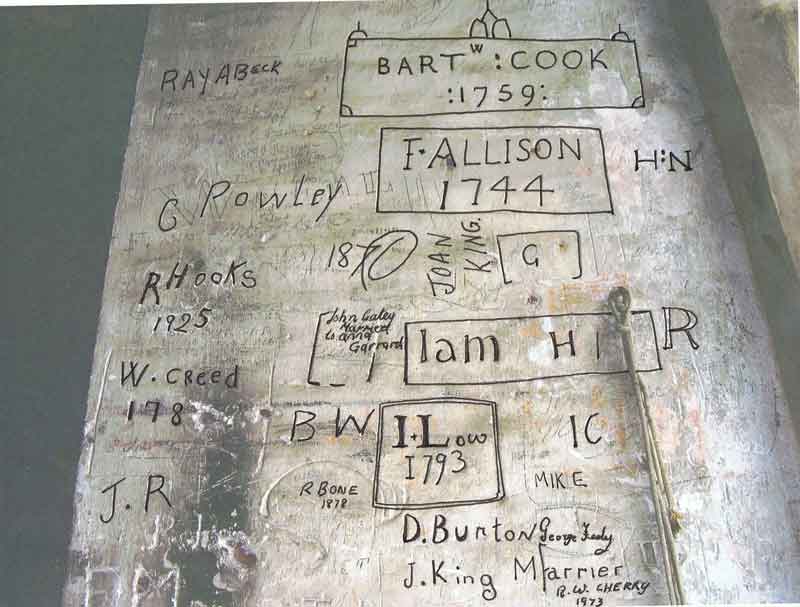 RAY ABECK
BARTW : COOK
:1759:
F. ALLISON
1744
H:N
G Rowley
1870
JOAN
KING.
G
R HOOKS
1925
John Galey
Married
Garrard
Iam H I
R
W. Creed
178
B W
I+Low
1793
IC
R BONE
1878
MIKE
J. R
D. Burton
George
J. King
Marrier
R.W. CHERRY
1973